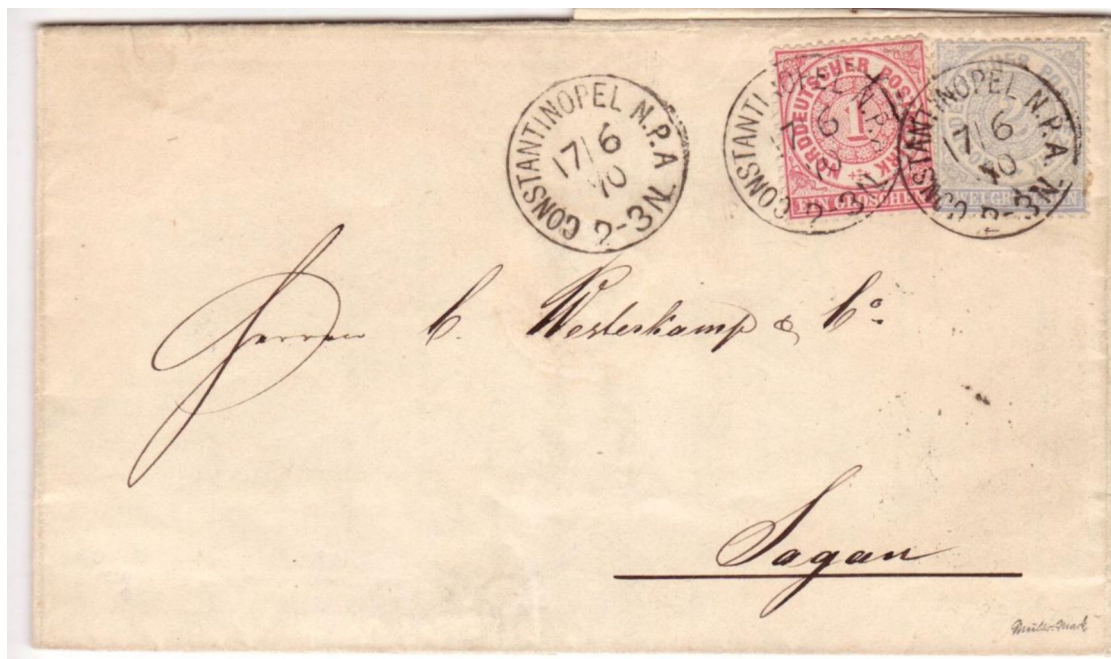 CONSTANTINOPEL N.P.A
17/6
70
2-3N
CONSTANTINOPEL N.P.A
17/6
70
2-3N
NORDDEUTSCHER POSTBEZIRK
1
EIN GROSCHEN
CONSTANTINOPEL N.P.A.
17/6
70
2-3N
NORDDEUTSCHER POSTBEZIRK
2
ZWEI GROSCHEN
Herren C. Westerkamp & Co.
Sagan